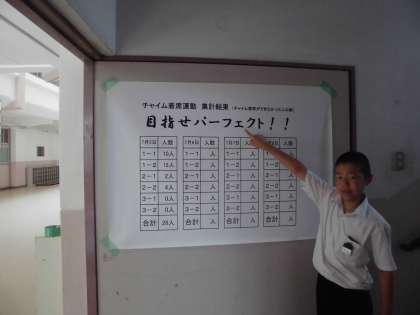 チャイム着席運動 集計結果
目指せパーフェクト!!
7月5日 人数 7月6日 人数 7月7日 人数 人数
1-1 10人 1-1 人 1-1 人 1-1 人
1-2 15人 1-2 人 1-2 人 1-2 人
2-1 2人 2-1 人 2-1 人 2-1 人
2-2 人 2-2 人 2-2 人 2-2 人
3-1 0人 3-1 人 3-1 人 3-1 人
3-2 0人 3-2 人 3-2 人 3-2 人
合計 人 合計 人 合計 人 合計 人